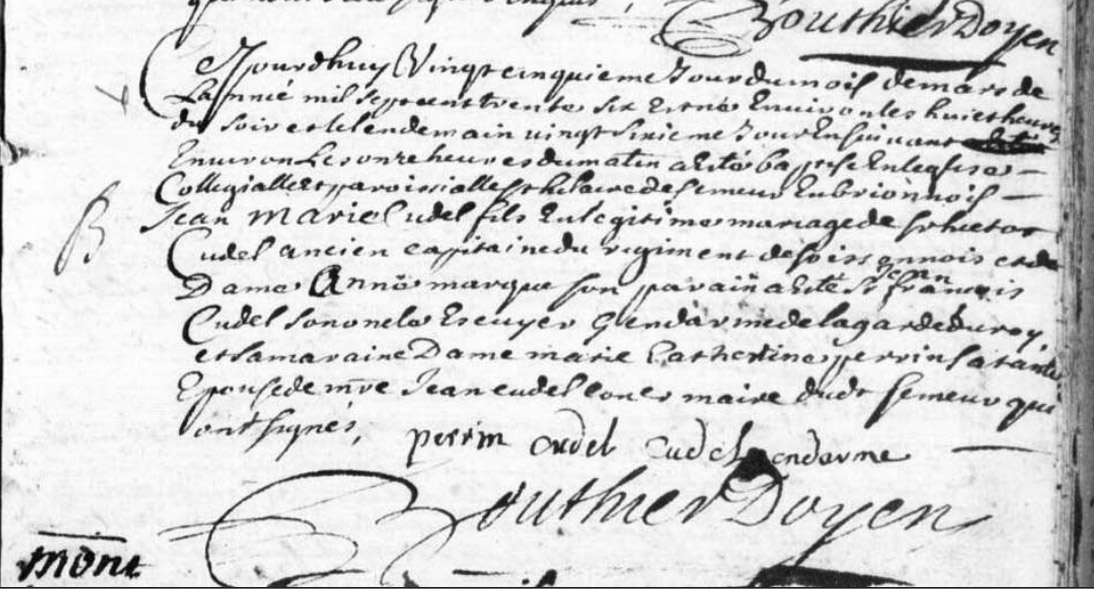 Bouthier Doyen
Cejourdhuy Vingt cinquieme Jour du mois de mars de
Lannée mil sept cent trente six Est né Environ les huict heures
du soir et le lendemain vingt sixieme Jour Ensuivant
Environ Les onze heures du matin a Esté baptisé En leglise
Collegialle et paroissialle St hilaire de semeur En brionnois
Jean Marie Cudel fils En legitime mariage de sr hector
Cudel ancien capitaine du regiment de soissonnois et de
Dame Anne marque son parain a Esté Sr Jean francois
Cudel son oncle Escuyer Gendarme de la garde du roy,
et sa maraine Dame marie Catherine perrin sa tante
Epouse de mre Jean cudel coner maire dudt semeur qui
ont signés,
perrin cudel Cudel gendarme
Bouthier Doyen
mont